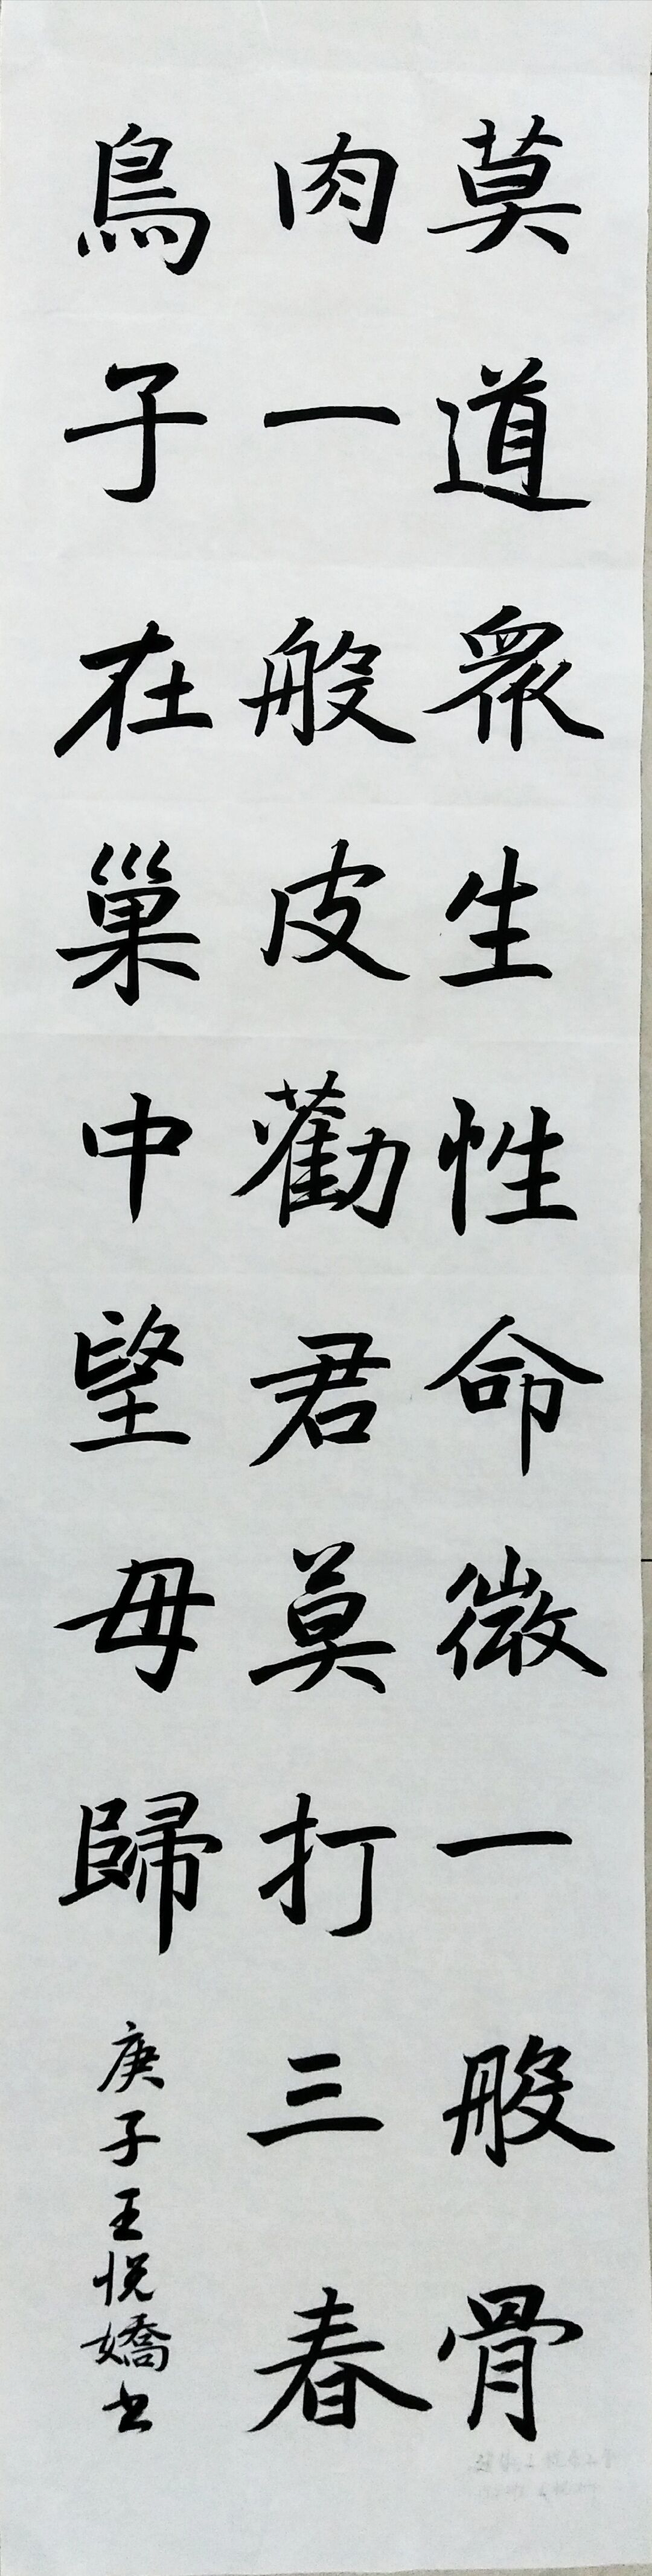 莫道眾生性命微一般骨
肉一般皮勸君莫打三春
鳥子在巢中望母歸
庚子王悦嬌书